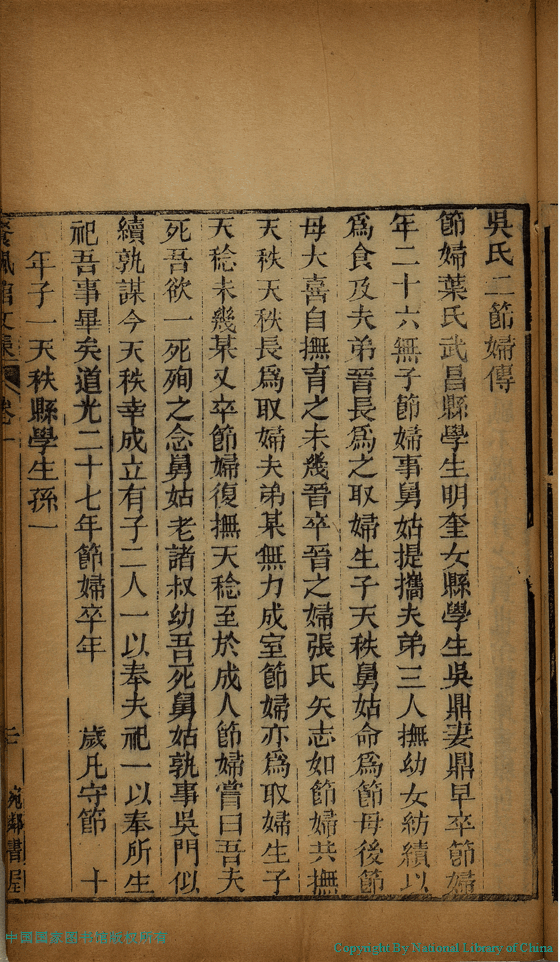 吳氏二節婦傳
節婦葉氏武昌縣學生明奎女縣學生吳鼎妻鼎早卒節婦
年二十六無子節婦事舅姑提攜夫弟三人撫幼女紡績以
為食及夫弟晉長為之取婦生子天秩舅姑命為節母後節
母大喜自撫育之未幾晉卒晉之婦張氏矢志如節婦共撫
天秩天秩長為取婦夫弟某無力成室節婦亦為取婦生子
天稔未幾某又卒節婦復撫天稔至於成人節婦嘗曰吾夫
死吾欲一死殉之念舅姑老諸叔幼吾死舅姑孰事吳門似
續孰謀今天秩幸成立有子二人一以奉夫祀一以奉所生
祀吾事畢矣道光二十七年節婦卒年 歲凡守節 十
年子一天秩縣學生孫一
文集 卷一 宛鄰書屋
中国国家图书馆版权所有
Copyright By National Library of China